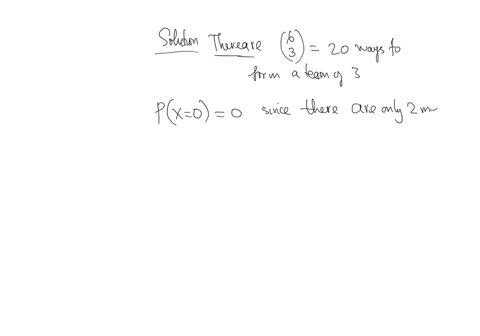 Solution There are (6 3) = 20 ways to
form a team of 3
P(X=0) = 0 since there are only 2 m